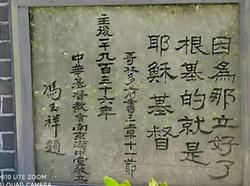 因為那立好了
根基的就是
耶穌基督
哥林多前書三章十一節
主後一千九百三十六年
中華基督教會南京漢中堂敬立
馮玉祥題
MI 10 LITE ZOOM
AI QUAD CAMERA